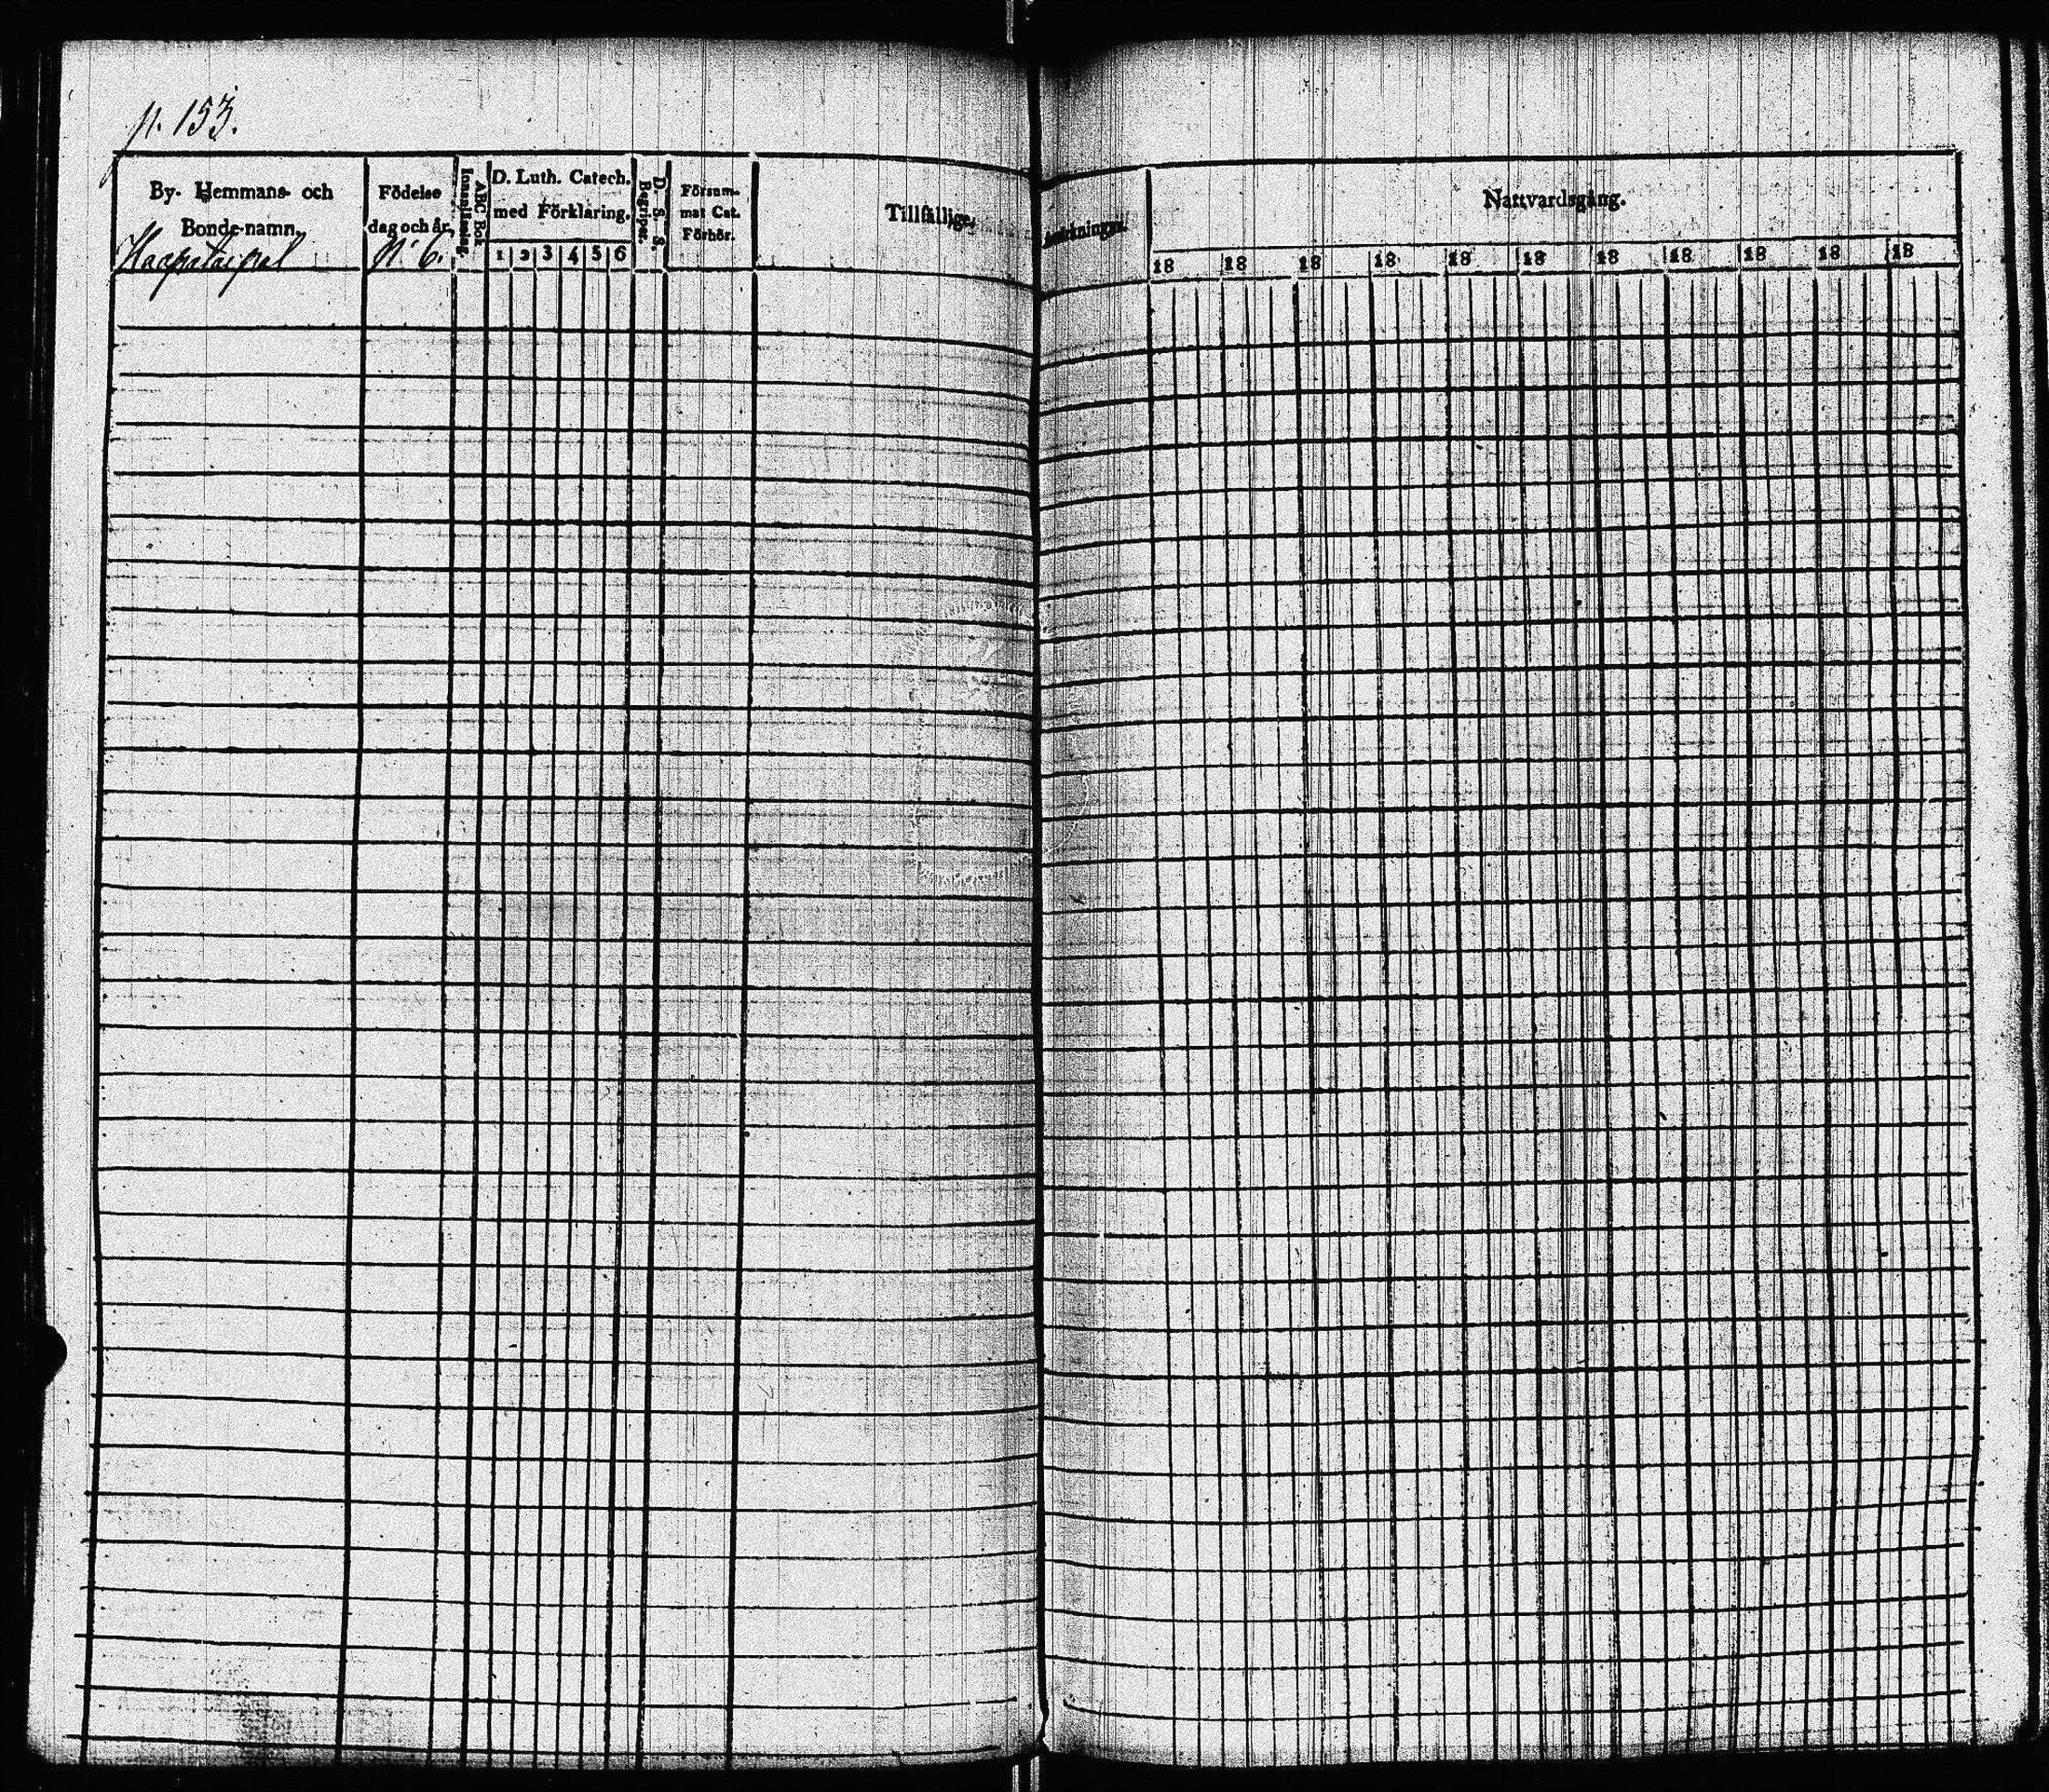 p. 153.
By- Hemmans- och
Bonde-namn.
Födelse
dag och år.
ABC Bok
Innanläsning.
D. Luth. Catech.
med Förklaring.
1 2 3 4 5 6
D. S. S.
Begriper.
Försum-
mat Cat.
Förhör.
Tillfällige
Anmärkningar.
Nattvardsgång.
18 18 18 18 18 18 18 18 18 18 18
Haapataipal
N:o 6.